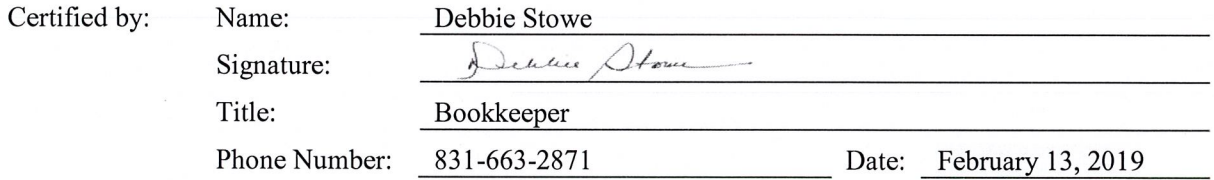 Certified by: Name: Debbie Stowe
Signature: Debbie Stowe
Title: Bookkeeper
Phone Number: 831-663-2871 Date: February 13, 2019